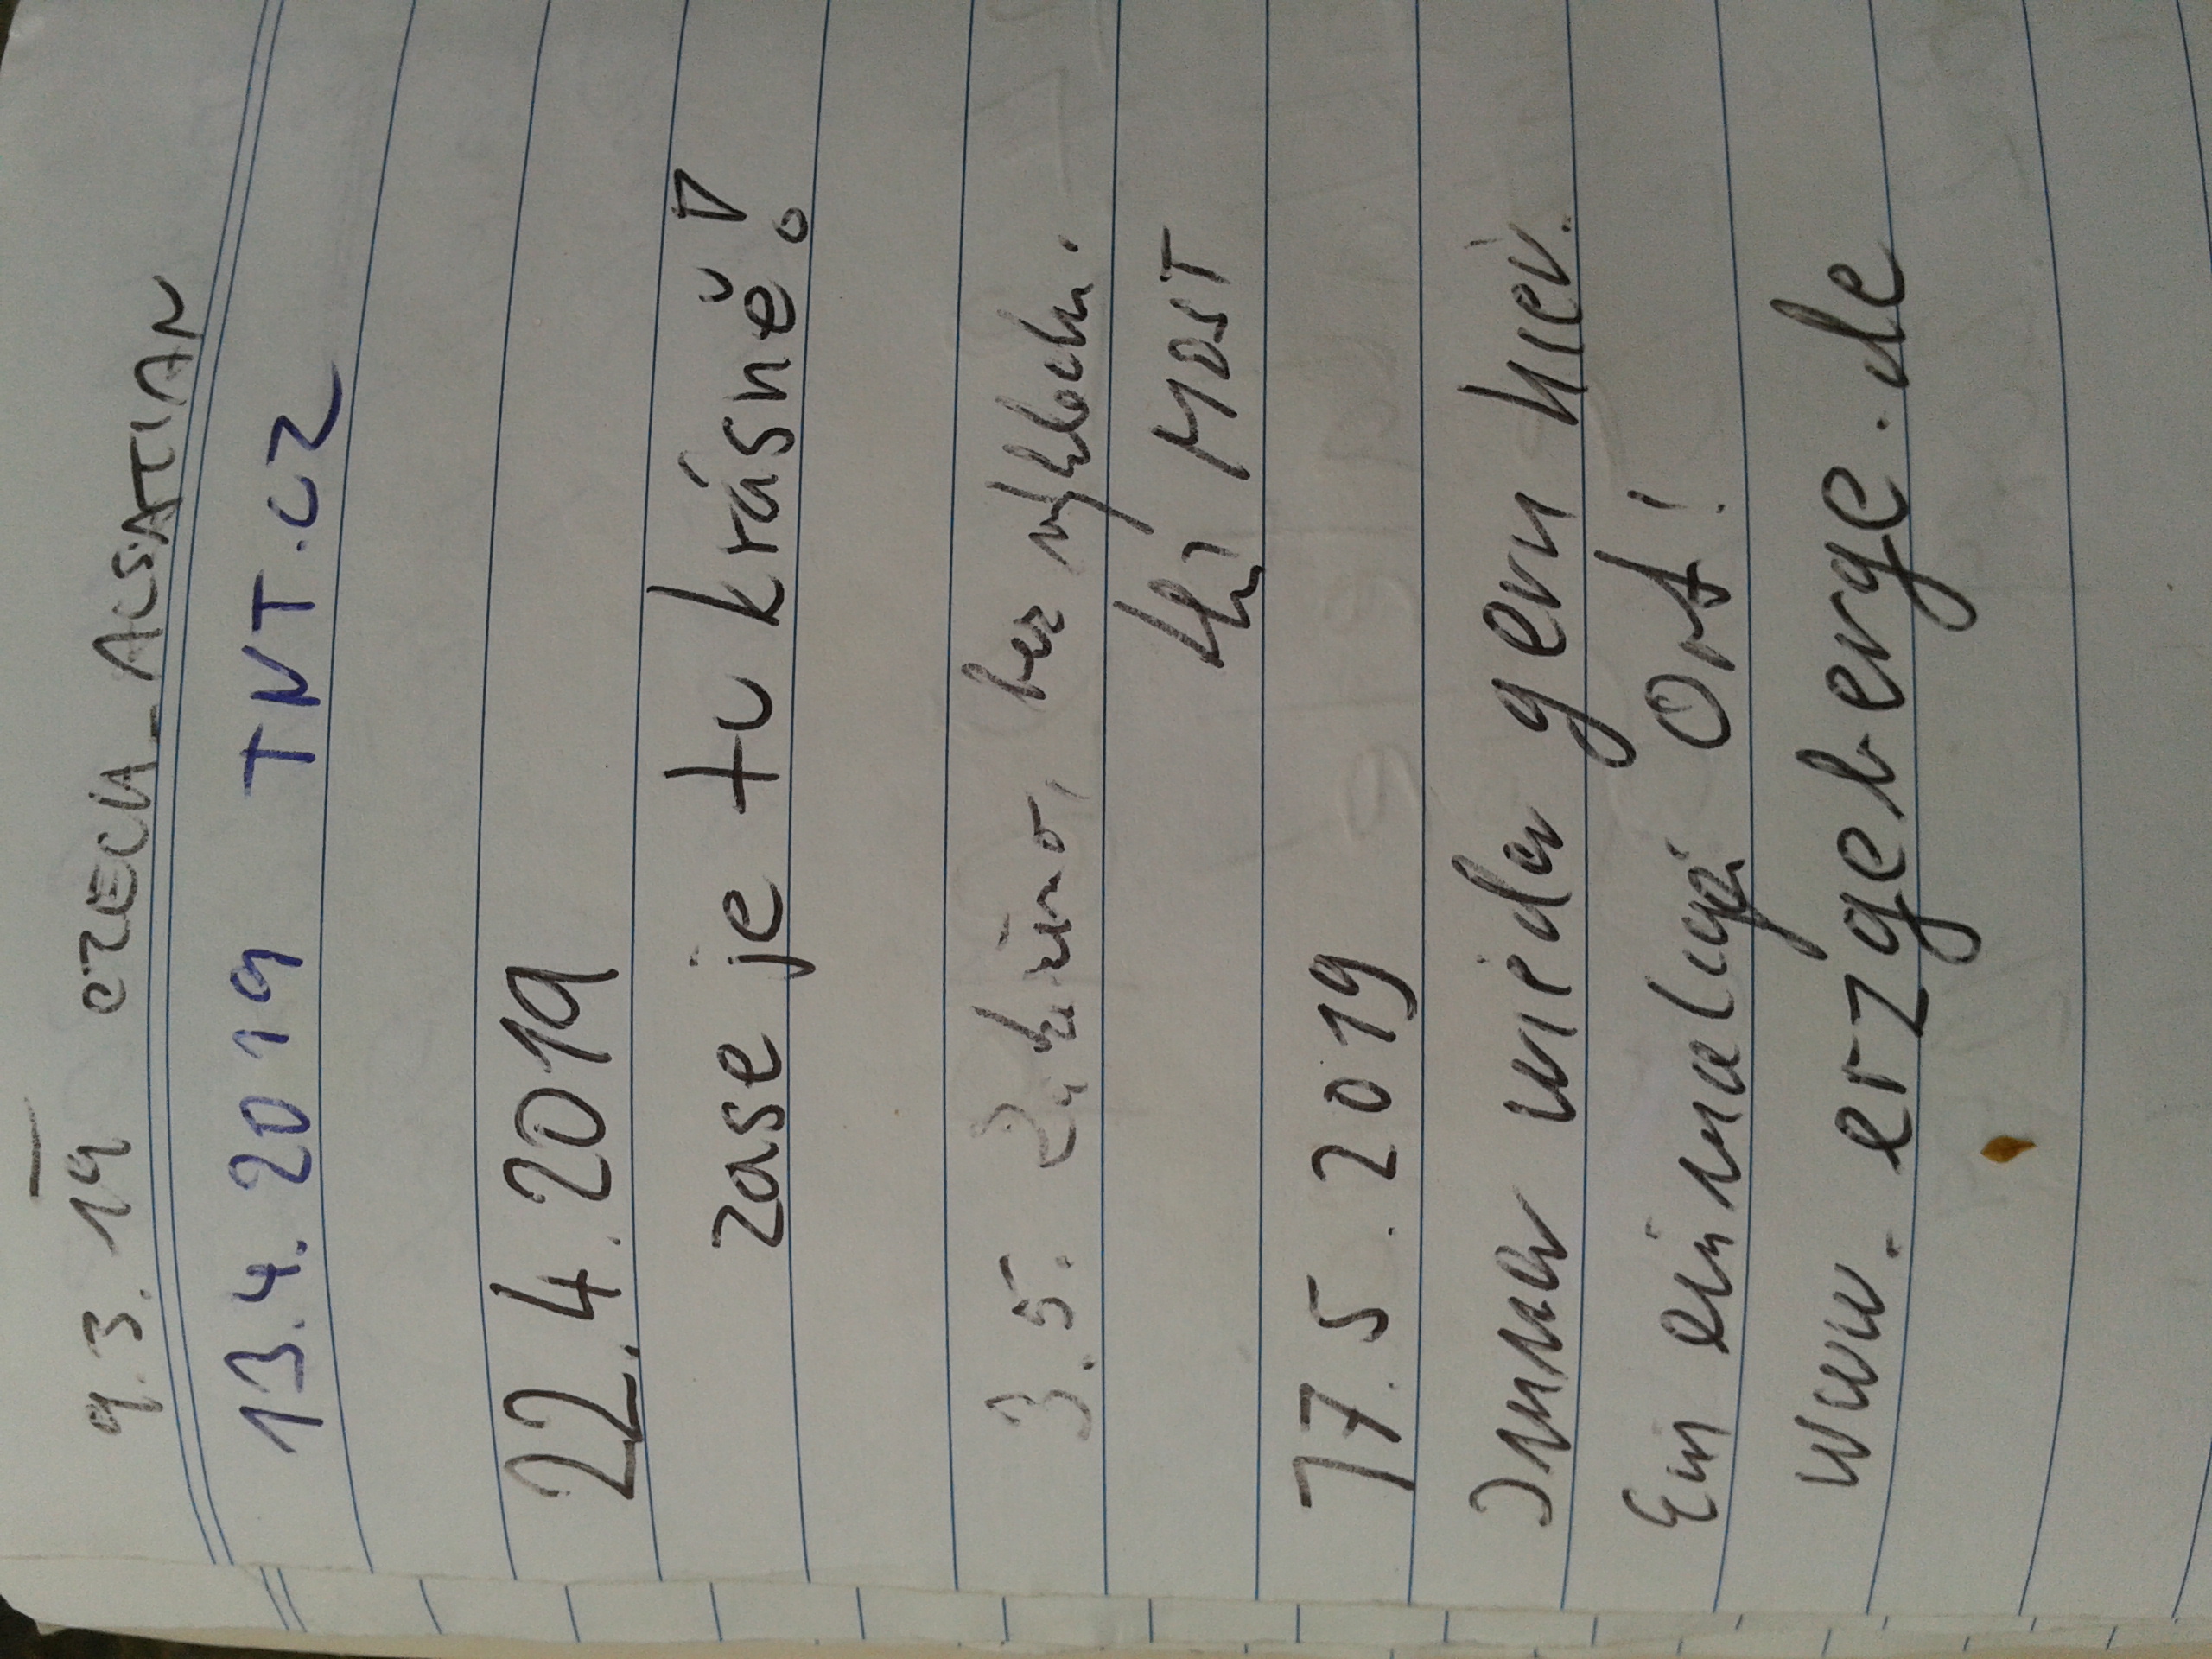 9.3.19 CZECH-ALSATIAN
13.4.2019 TNT.CZ
22.4.2019
zase je tu krásně!
3.5. bez výhledu.
MOST
17.5.2019
Immer wieder gern hier.
Ein einmaliger Ort!
www.erzgeberge.de